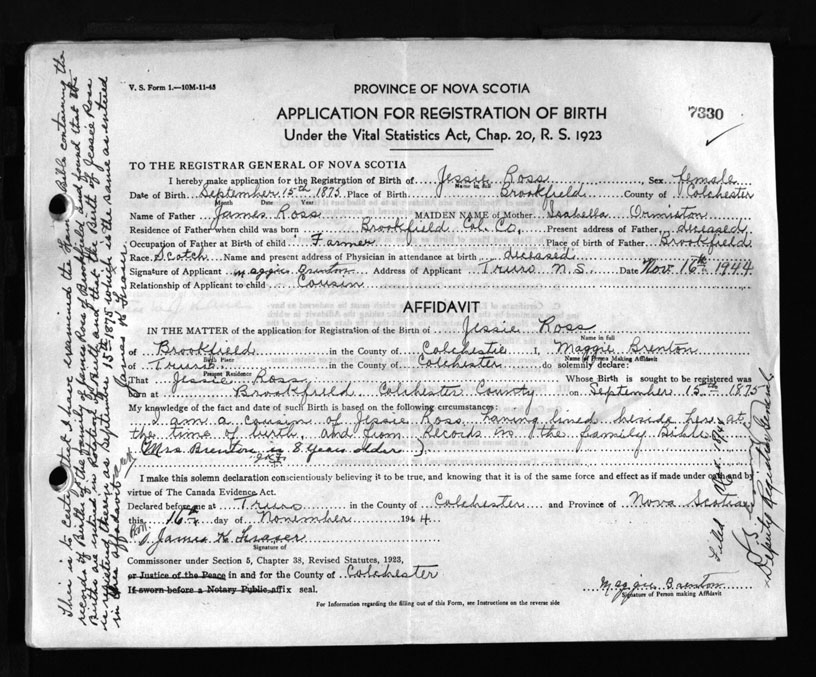 V. S. Form 1.—10M-11-43
PROVINCE OF NOVA SCOTIA
APPLICATION FOR REGISTRATION OF BIRTH
7330
Under the Vital Statistics Act, Chap. 20, R. S. 1923
TO THE REGISTRAR GENERAL OF NOVA SCOTIA
I hereby make application for the Registration of Birth of Jessie Ross, Sex female
Name in full
Date of Birth September 15th 1875 Place of Birth Brookfield County of Colchester
Month Date Year
Name of Father James Ross MAIDEN NAME of Mother Isabella Ormiston
Residence of Father when child was born Brookfield Col. Co. Present address of Father, deceased
Occupation of Father at Birth of child Farmer Place of birth of Father Brookfield
Race Scotch Name and present address of Physician in attendance at birth deceased
Signature of Applicant Maggie Brenton Address of Applicant Truro N.S. Date Nov. 16th 1944
Relationship of Applicant to child Cousin
AFFIDAVIT
IN THE MATTER of the application for Registration of the Birth of Jessie Ross
Name in full
of Brookfield in the County of Colchester I, Maggie Brenton
Birth Place Name of Person Making Affidavit
of Truro in the County of Colchester do solemnly declare:
Present Residence
That Jessie Ross Whose Birth is sought to be registered was
born at Brookfield Colchester County on September 15th 1875
My knowledge of the fact and date of such Birth is based on the following circumstances:
I am a cousin of Jessie Ross having lived beside her at
the time of birth, and from records in the family Bible
(Mrs. Brenton is 8 years older)
J.K.F.
I make this solemn declaration conscientiously believing it to be true, and knowing that is of the same force and effect as if made under oath and by
virtue of The Canada Evidence Act.
Declared before me at Truro in the County of Colchester and Province of Nova Scotia
this 16th day of November 1944
James K Fraser
Signature of
Commissioner under Section 5, Chapter 38, Revised Statutes, 1923,
or Justice of the Peace in and for the County of Colchester
If sworn before a Notary Public affix seal.
Maggie Brenton
Signature of Person making Affidavit
For Information regarding the filling out of this Form, see Instructions on the reverse side
This is to certify that I have examined the Family Bible containing the
records of Birth of the family of James Ross of Brookfield and found that the
Births are entered in Rotation of Birth and that the Birth of Jessie Ross
is registered therein as September 15th 1875 which is the same as entered
in this affidavit
James K Fraser
Filed
Deputy Registrar General